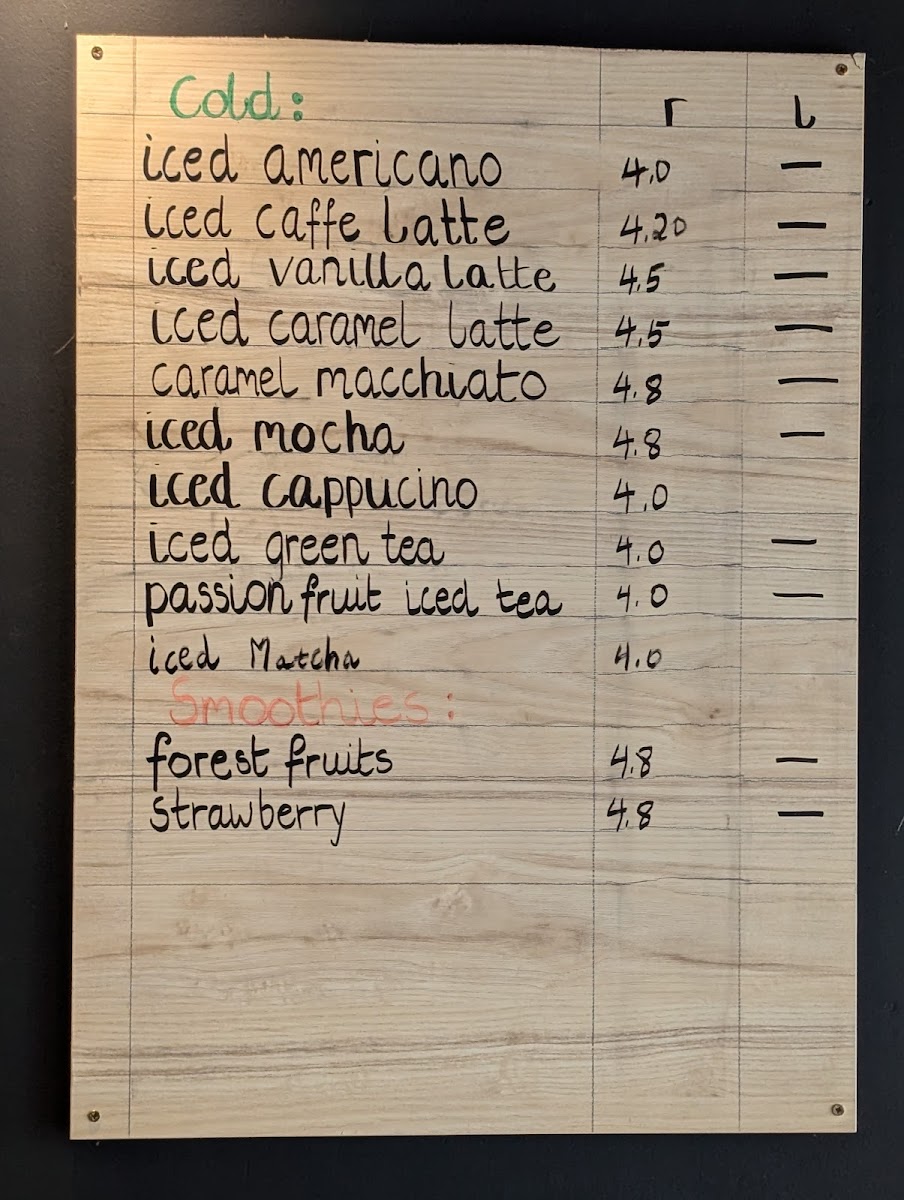 Cold: r l
iced americano 4.0 —
iced caffe latte 4.20 —
iced vanilla latte 4.5 —
iced caramel latte 4.5 —
caramel macchiato 4.8 —
iced mocha 4.8 —
iced cappucino 4.0
iced green tea 4.0 —
passion fruit iced tea 4.0 —
iced Matcha 4.0
Smoothies:
forest fruits 4.8 —
strawberry 4.8 —